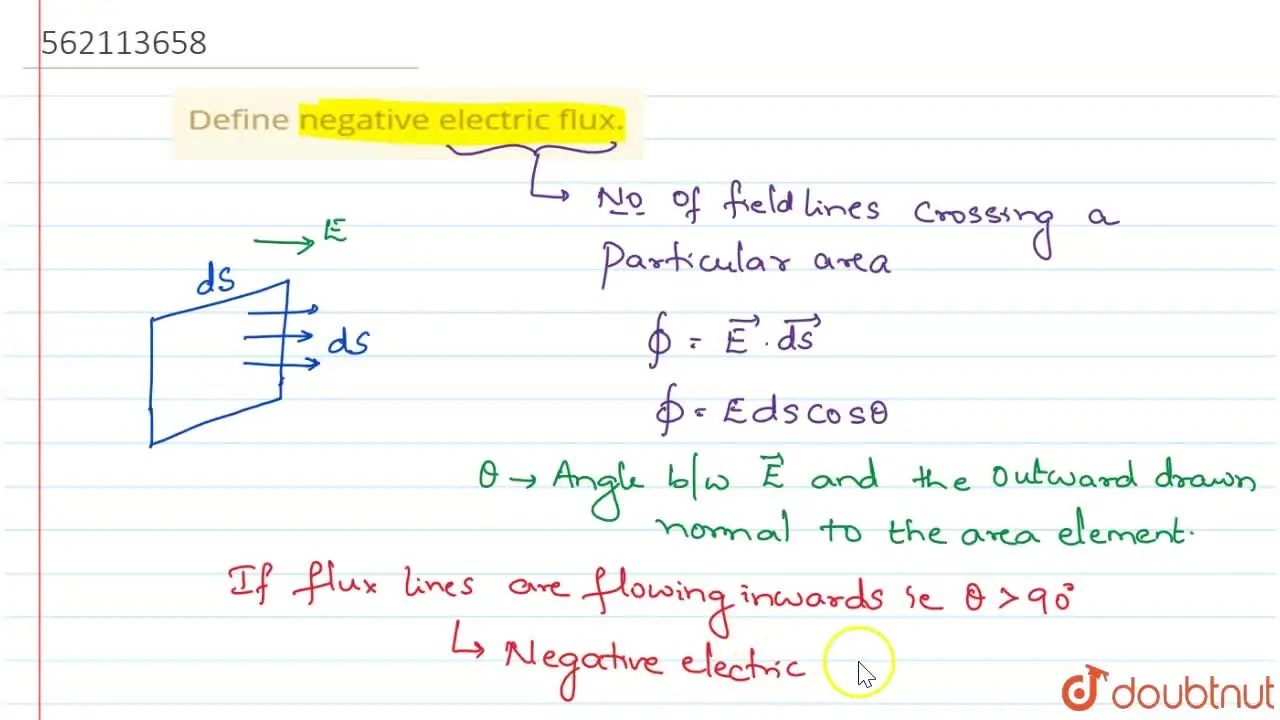 562113658
Define negative electric flux.
→ No of field lines crossing a
particular area
E
ds
ds
ϕ = E⃗ . ds⃗
ϕ = E ds cos θ
θ → Angle b/w E⃗ and the outward drawn
normal to the area element.
If flux lines are flowing inwards ie θ > 90°
↳ Negative electric
doubtnut